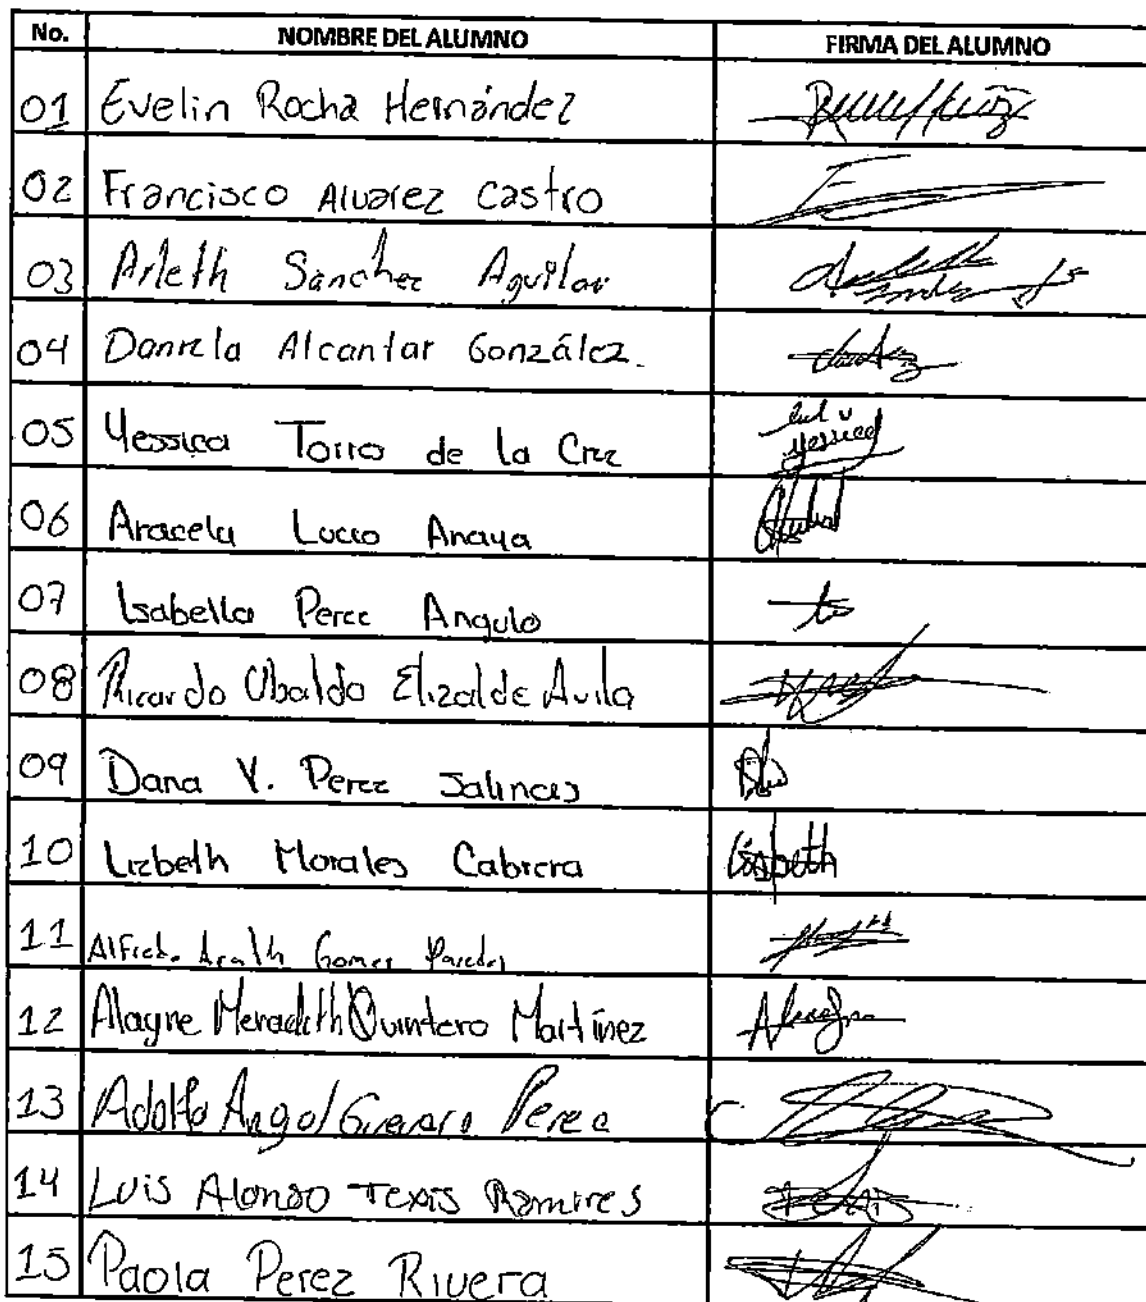 No. NOMBRE DEL ALUMNO FIRMA DEL ALUMNO
01 Evelin Rocha Hernández
02 Francisco Alvarez Castro
03 Arleth Sanchez Aguilar
04 Daniela Alcantar González.
05 Yessica Torres de la Cruz Yessica
06 Aracely Anaya
07 Isabella Perez Angulo
08 Ricardo Ubaldo Elizalde Avila
09 Dana V. Perez Salinas
10 Lizbeth Morales Cabrera Lizbeth
11 Alfredo Gomez Paredes
12 Alayne Meradith Quintero Martínez
13 Adolfo Angel Perez
14 Luis Alonso Texis Ramires
15 Paola Perez Rivera